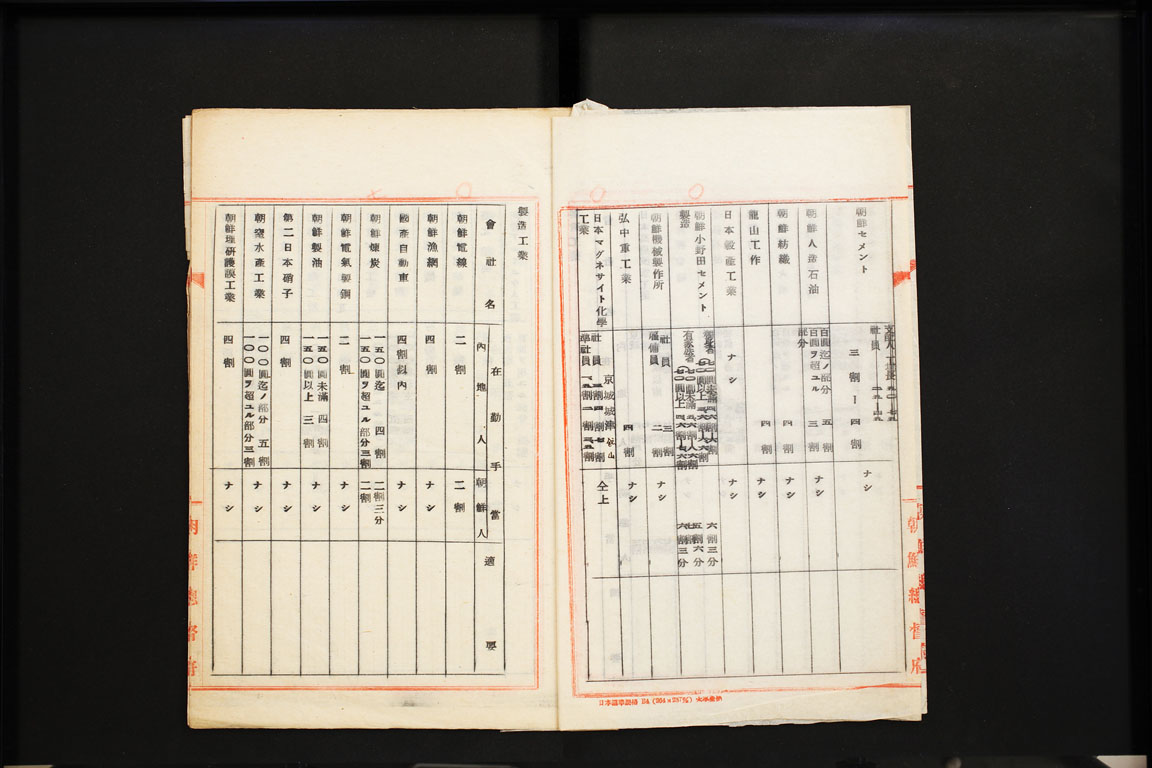 朝鮮セメント
支配人、工長 五〇-七五
社員 二五-四五
三割-四割
ナシ
朝鮮人造石油
百圓迄ノ部分 五割
百圓ヲ超ユル部分 三割
ナシ
朝鮮紡織
四割
ナシ
龍山工作
四割
ナシ
日本穀産工業
ナシ
ナシ
朝鮮小野田セメント製造
有家族者
六割三分
五割六分
六割三分
朝鮮機械製作所
社員 三割
雇傭員 二割
ナシ
弘中重工業
四割
ナシ
日本マグネサイト化學工業
京城城津
社員
準社員
仝上
製造工業
會社名
在勤手當
內地人
朝鮮人
適要
朝鮮電線
二割
二割
朝鮮漁網
四割
ナシ
國產自動車
四割以內
ナシ
朝鮮煉炭
一五〇圓迄 四割
一五〇圓ヲ超ユル部分三割
二割三分
二割
朝鮮電氣製鋼
二割
ナシ
朝鮮製油
一五〇圓未滿 四割
一五〇圓以上 三割
ナシ
第二日本硝子
四割
ナシ
朝窒水產工業
一〇〇圓迄ノ部分 五割
一〇〇圓ヲ超ユル部分三割
ナシ
朝鮮理研護謨工業
四割
ナシ
朝鮮總督府
朝鮮總督府